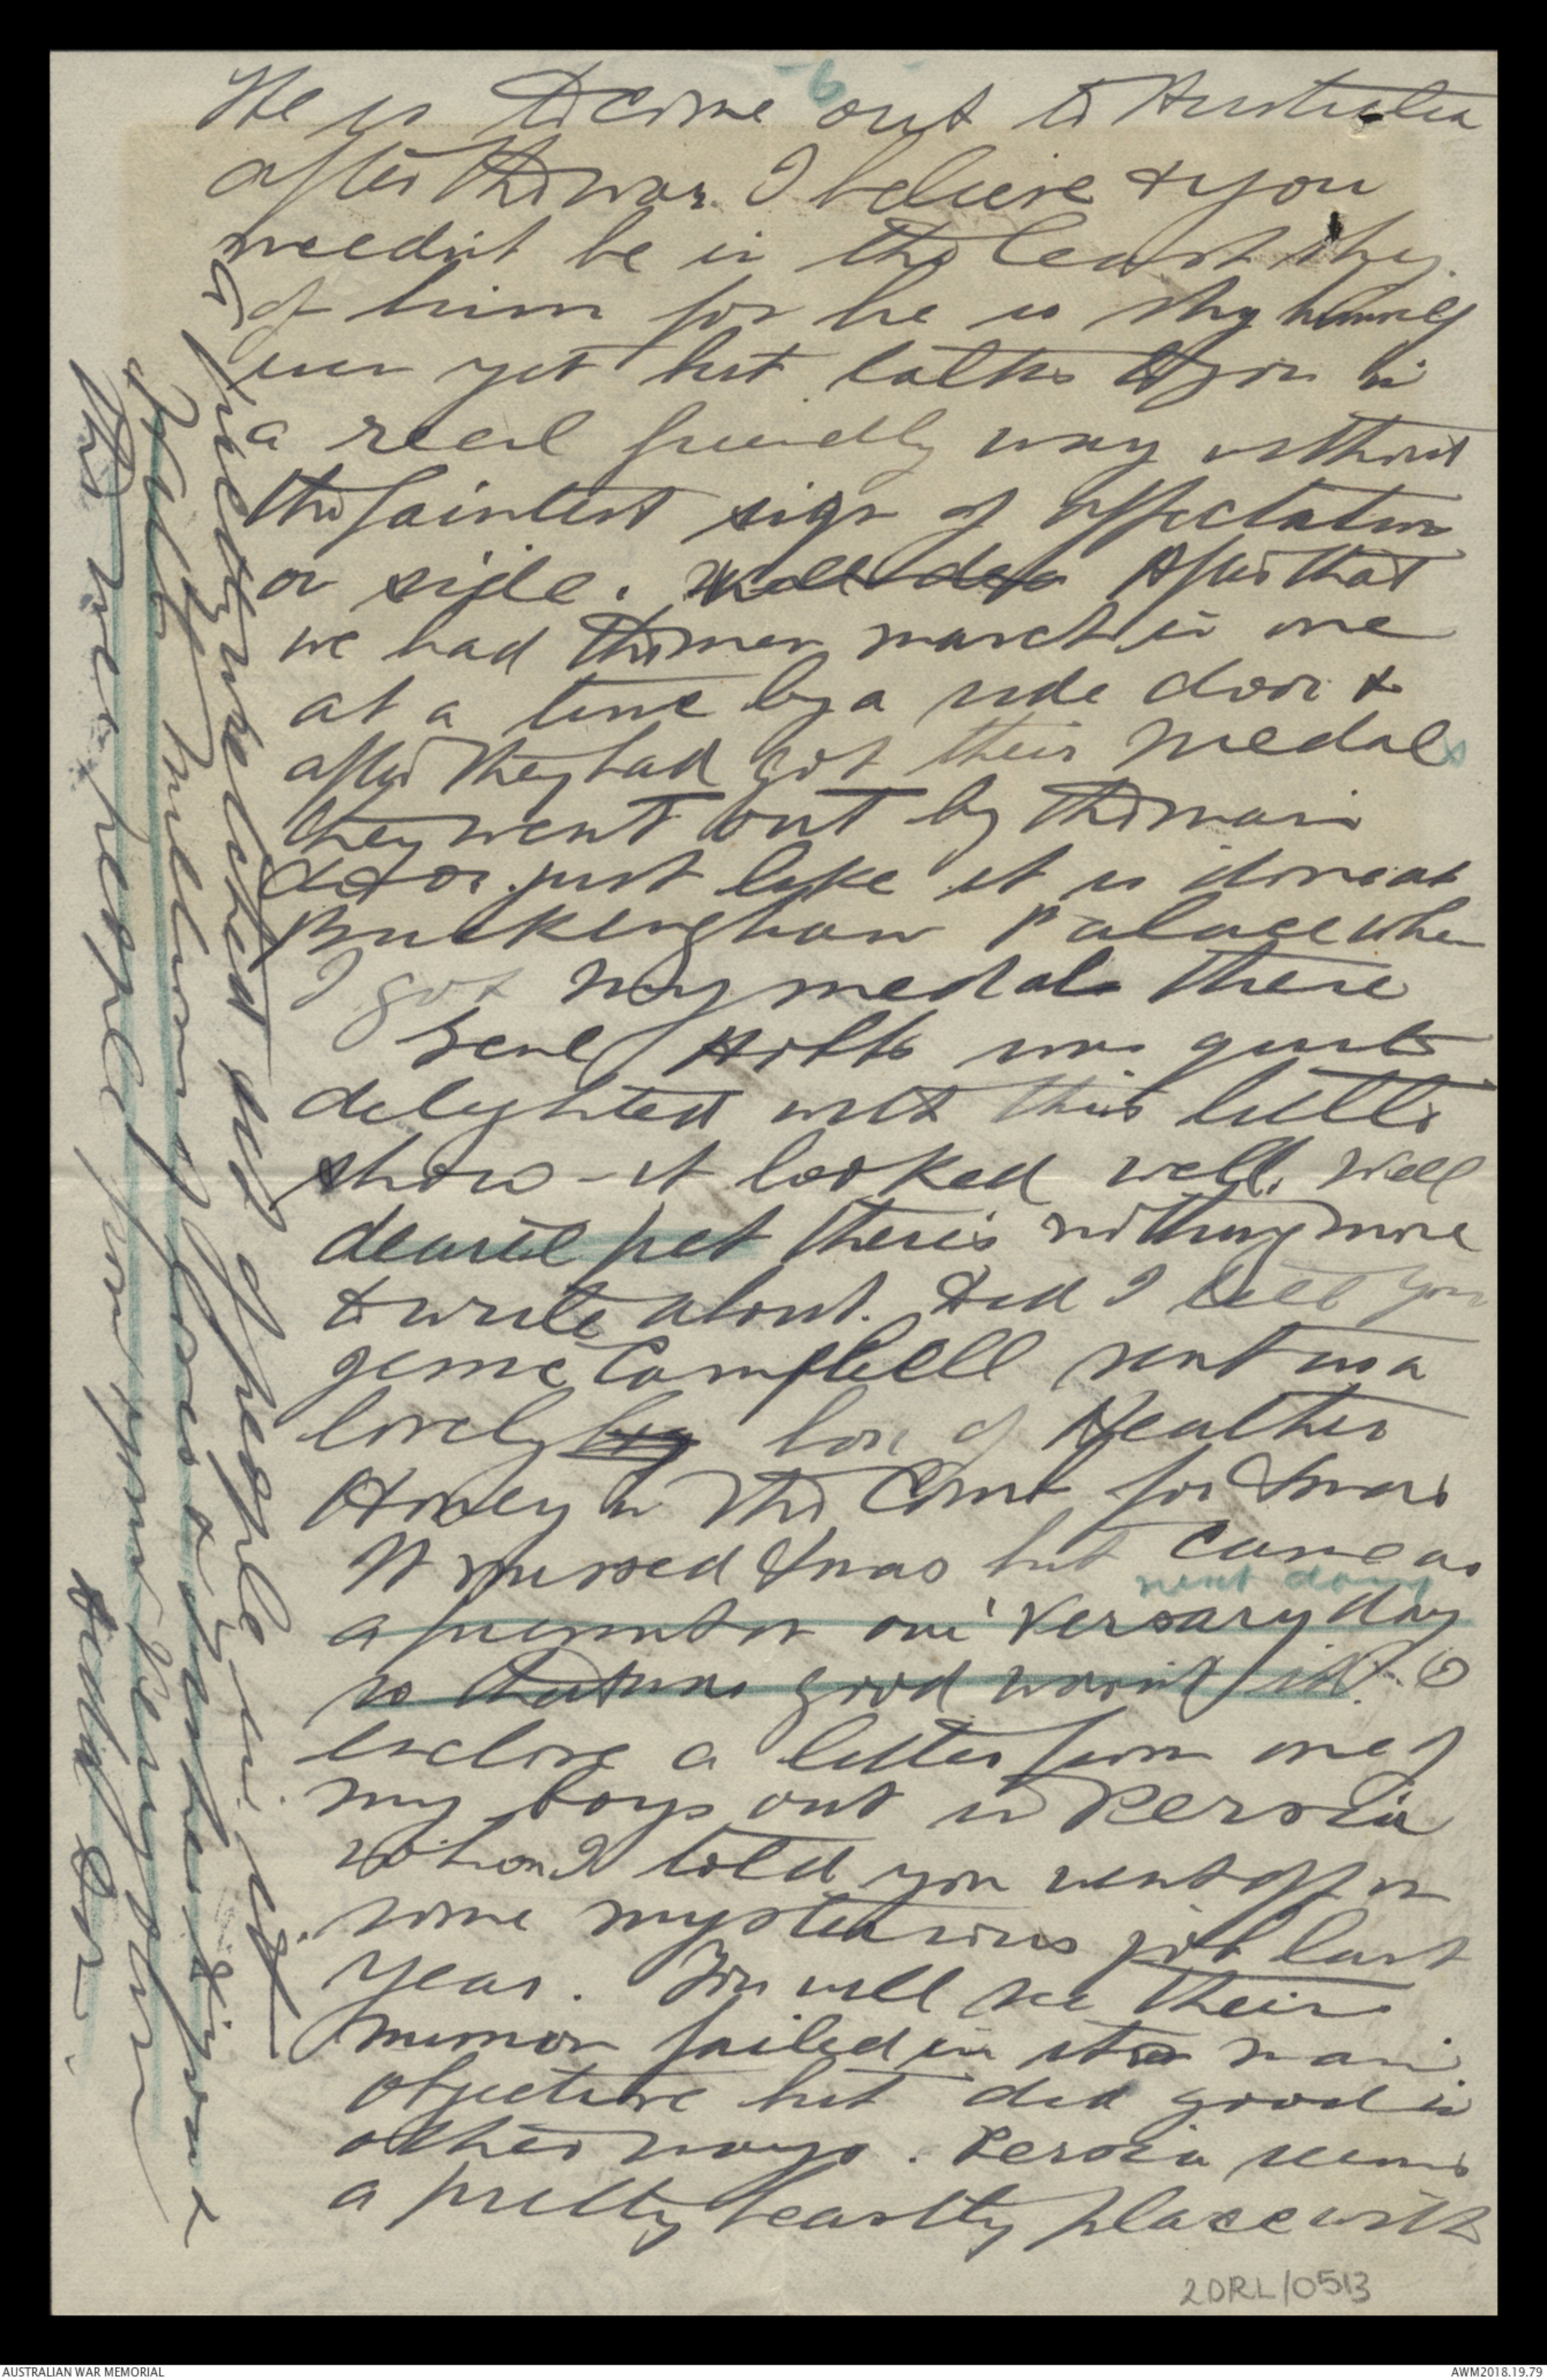 -6-
He is to come out to Australia
after the war I believe & you
needn't be in the least shy
of him for he is shy himself
even yet but talks to you in
a real friendly way without
the faintest sign of affectation
or side. After that
we had the men march in one
at a time by a side door &
after they had got their medals
they went out by the main
door just like it is done at
Buckingham Palace when
I got my medals there
Genl Hobbs was quite
delighted with this little
show - it looked well. Well
dearie pet there's nothing more
to write about. Did I tell you
Jamie Campbell sent us a
lovely big box of Heather
Honey in the Comb for Xmas
It missed Xmas but came as
next day
a present on our 'Versary day
so that was good wasn't it. I
enclose a letter from one of
my boys out in Persia
whom I told you went off on
some mysterious job last
year. You will see their
mission failed in its main
objective but did good in
other ways. Persia seems
a pretty beastly place with
a pretty wretched set of people in it
Heaps of love & kisses &
the wee people from your
2DRL/0513
AUSTRALIAN WAR MEMORIAL
AWM2018.19.79